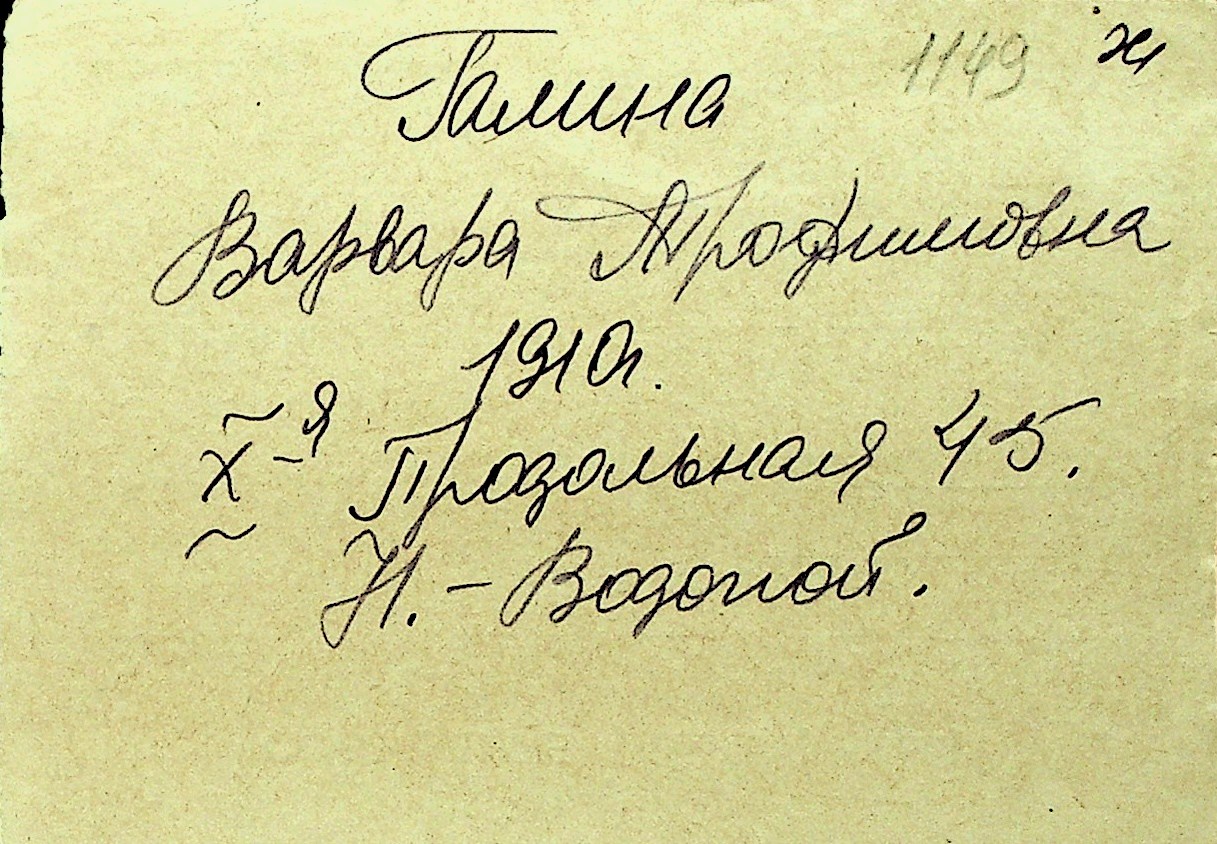 1149 ж
Галина
Варвара Трофимовна
1910г.
X-я Продольная 45.
Н.-Водопой.